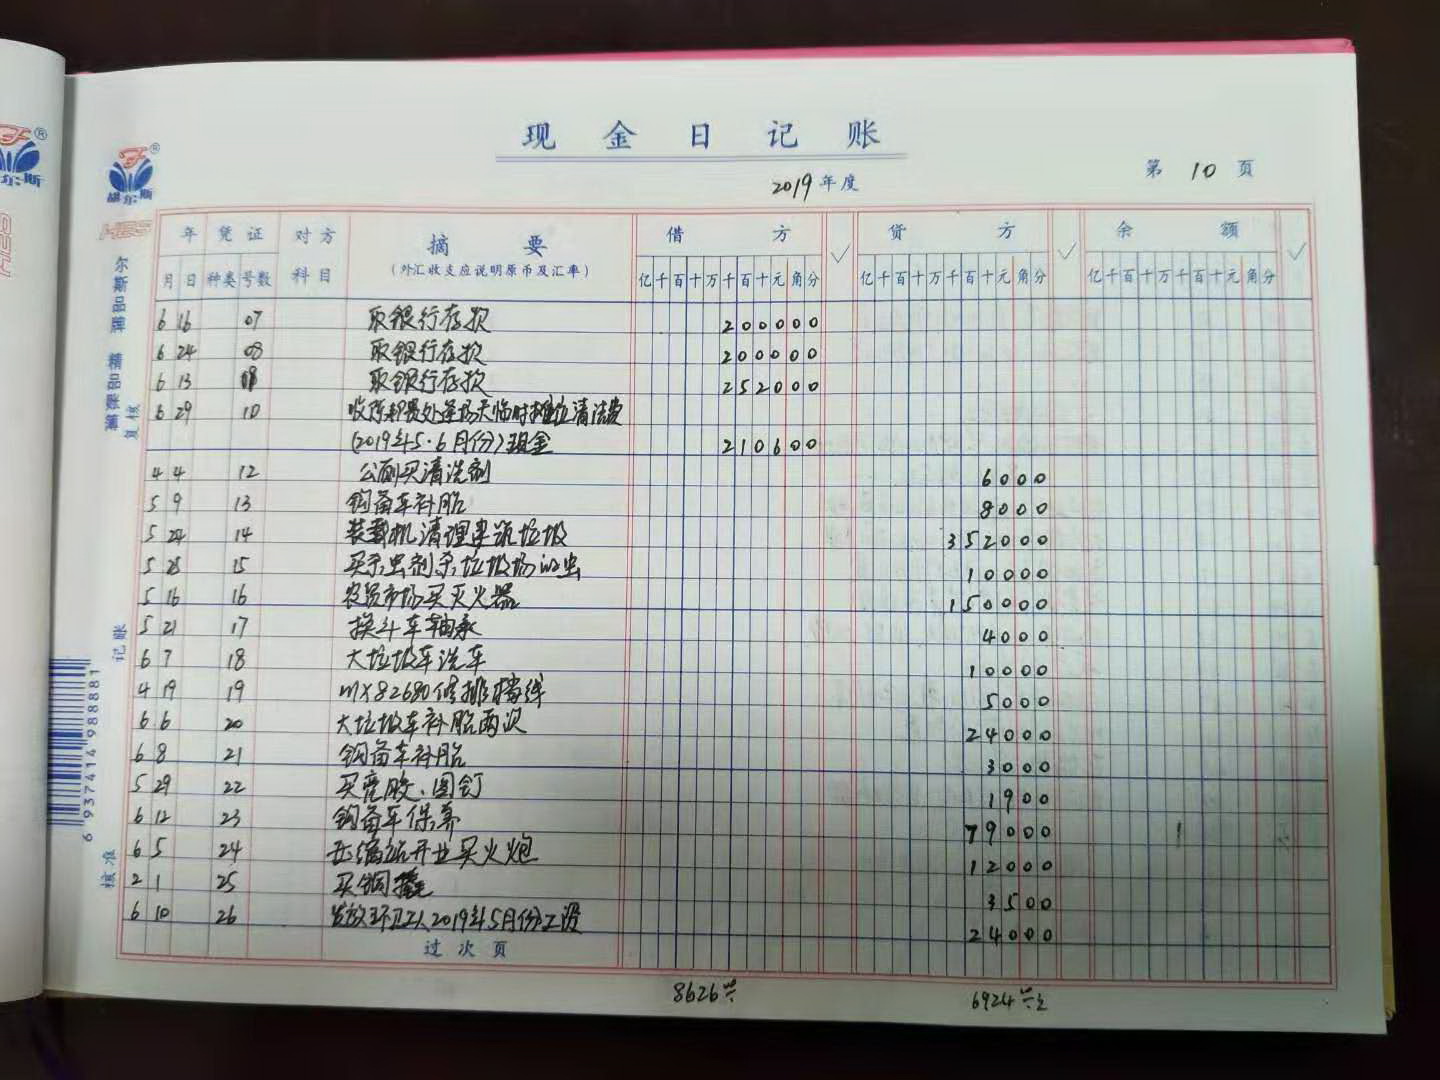 现金日记账
2019年度
第 10 页
赫尔斯
HES
年 凭证 对方 摘要 借方 贷方 余额
月 日 种类 号数 科目 (外汇收支应说明原币及汇率) 亿千百十万千百十元角分 亿千百十万千百十元角分 亿千百十万千百十元角分
6 16 07 取银行存款 200000
6 24 08 取银行存款 200000
6 13 取银行存款 252000
6 29 10 临时摊位清洁费
(2019年5.6月份)现金 210600
4 4 12 公厕买清洗剂 6000
5 9 13 钩备车补胎 8000
5 24 14 装载机清理建筑垃圾 352000
5 15 买杀虫剂杀垃圾场的虫 10000
5 16 16 农贸市场买灭火器 150000
5 21 17 换斗车轴承 4000
6 7 18 大垃圾车洗车 10000
4 19 19 MX82680修排档线 5000
6 6 20 大垃圾车补胎两次 24000
6 8 21 钩备车补胎 3000
5 29 22 买亮胶、图钉 1900
6 12 23 钩备车保养 79000
6 5 24 压缩站开业买火炮 12000
2 1 25 买钢 3500
6 10 26 发放环卫工人2019年5月份工资 24000
过次页
8626
6924
复核
记账
核准
6 937414 988881